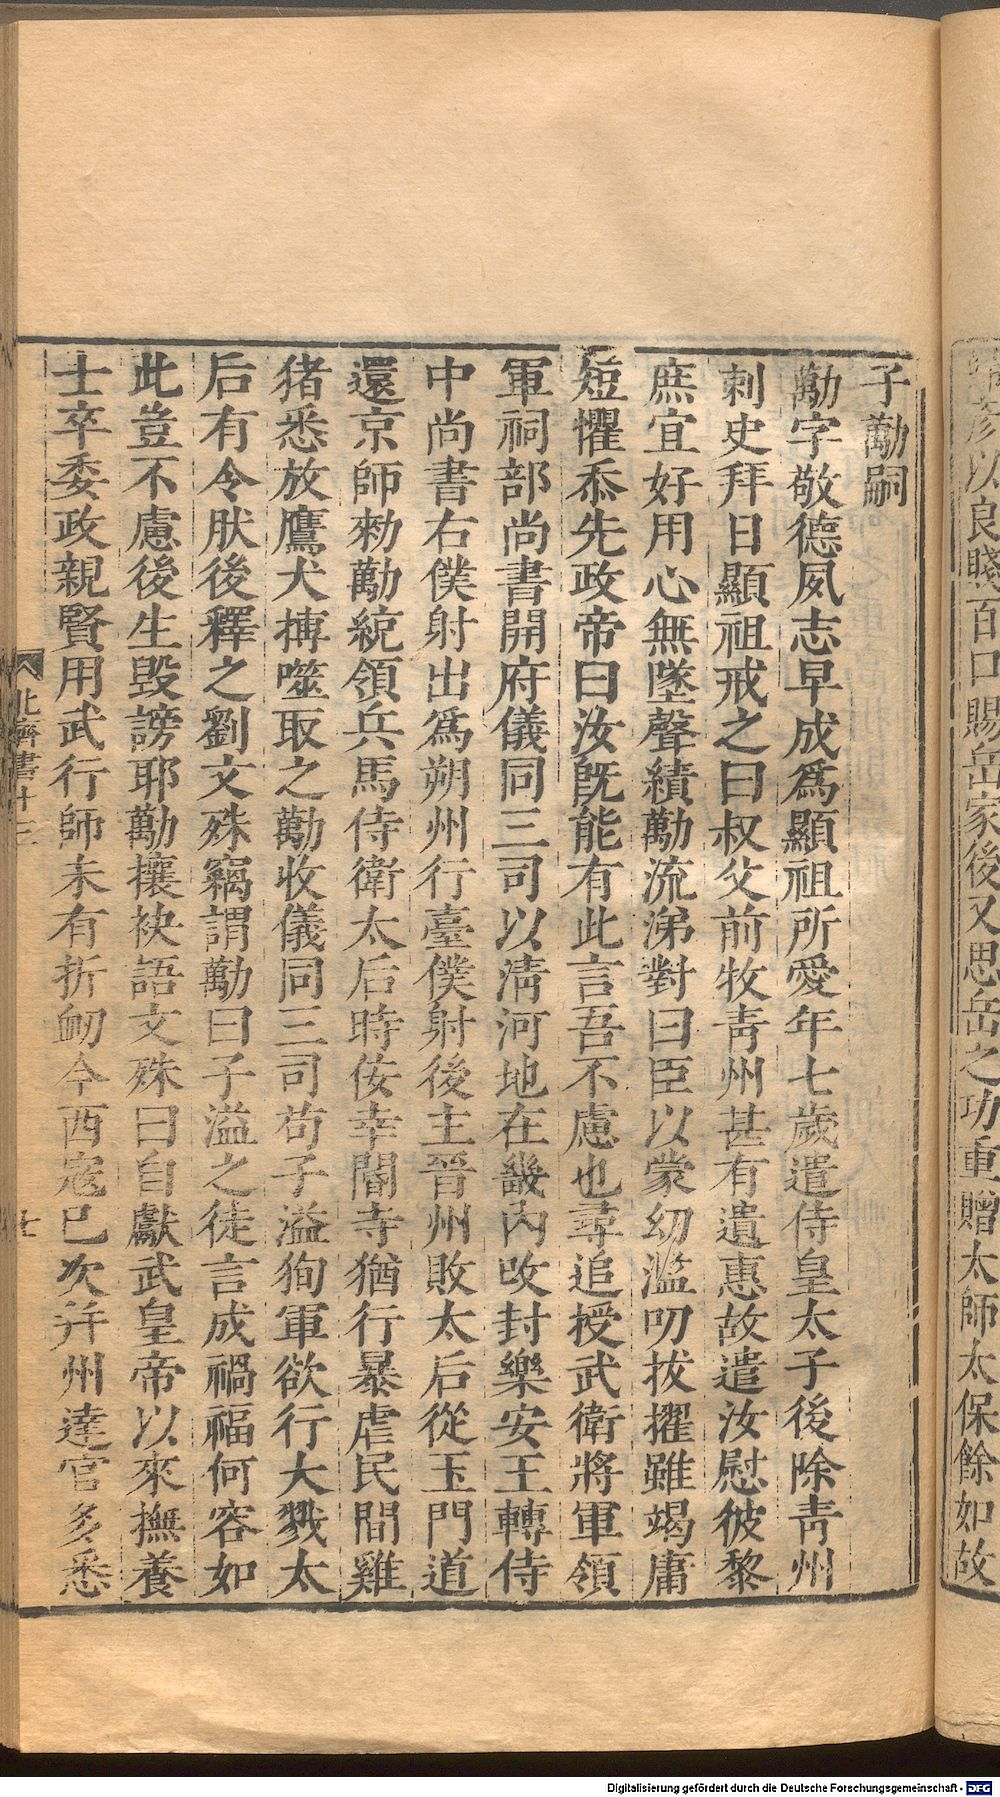 以良賤百口賜岳家後又思岳之功重贈太師太保餘如故
子勱嗣
勱字敬德夙志早成爲顯祖所愛年七歲遣侍皇太子後除青州
刺史拜日顯祖戒之曰叔父前牧青州甚有遺惠故遣汝慰彼黎
庶宜好用心無墜聲績勱流涕對曰臣以蒙幼濫叨拔擢雖竭庸
短懼忝先政帝曰汝旣能有此言吾不慮也尋追授武衛將軍領
軍祠部尚書開府儀同三司以清河地在畿內改封樂安王轉侍
中尚書右僕射出爲朔州行臺僕射後主晉州敗太后從玉門道
還京師勑勱統領兵馬侍衛太后時佞幸閽寺猶行暴虐民間雞
猪悉放鷹犬搏噬取之勱收儀同三司苟子溢狥軍欲行大戮太
后有令肰後釋之劉文殊竊謂勱曰子溢之徒言成禍福何容如
此豈不慮後生毀謗耶勱攘袂語文殊曰自獻武皇帝以來撫養
士卒委政親賢用武行師未有折衂今西寇已次并州達官多悉
北齊書十三
七
Digitalisierung gefördert durch die Deutsche Forschungsgemeinschaft - DFG